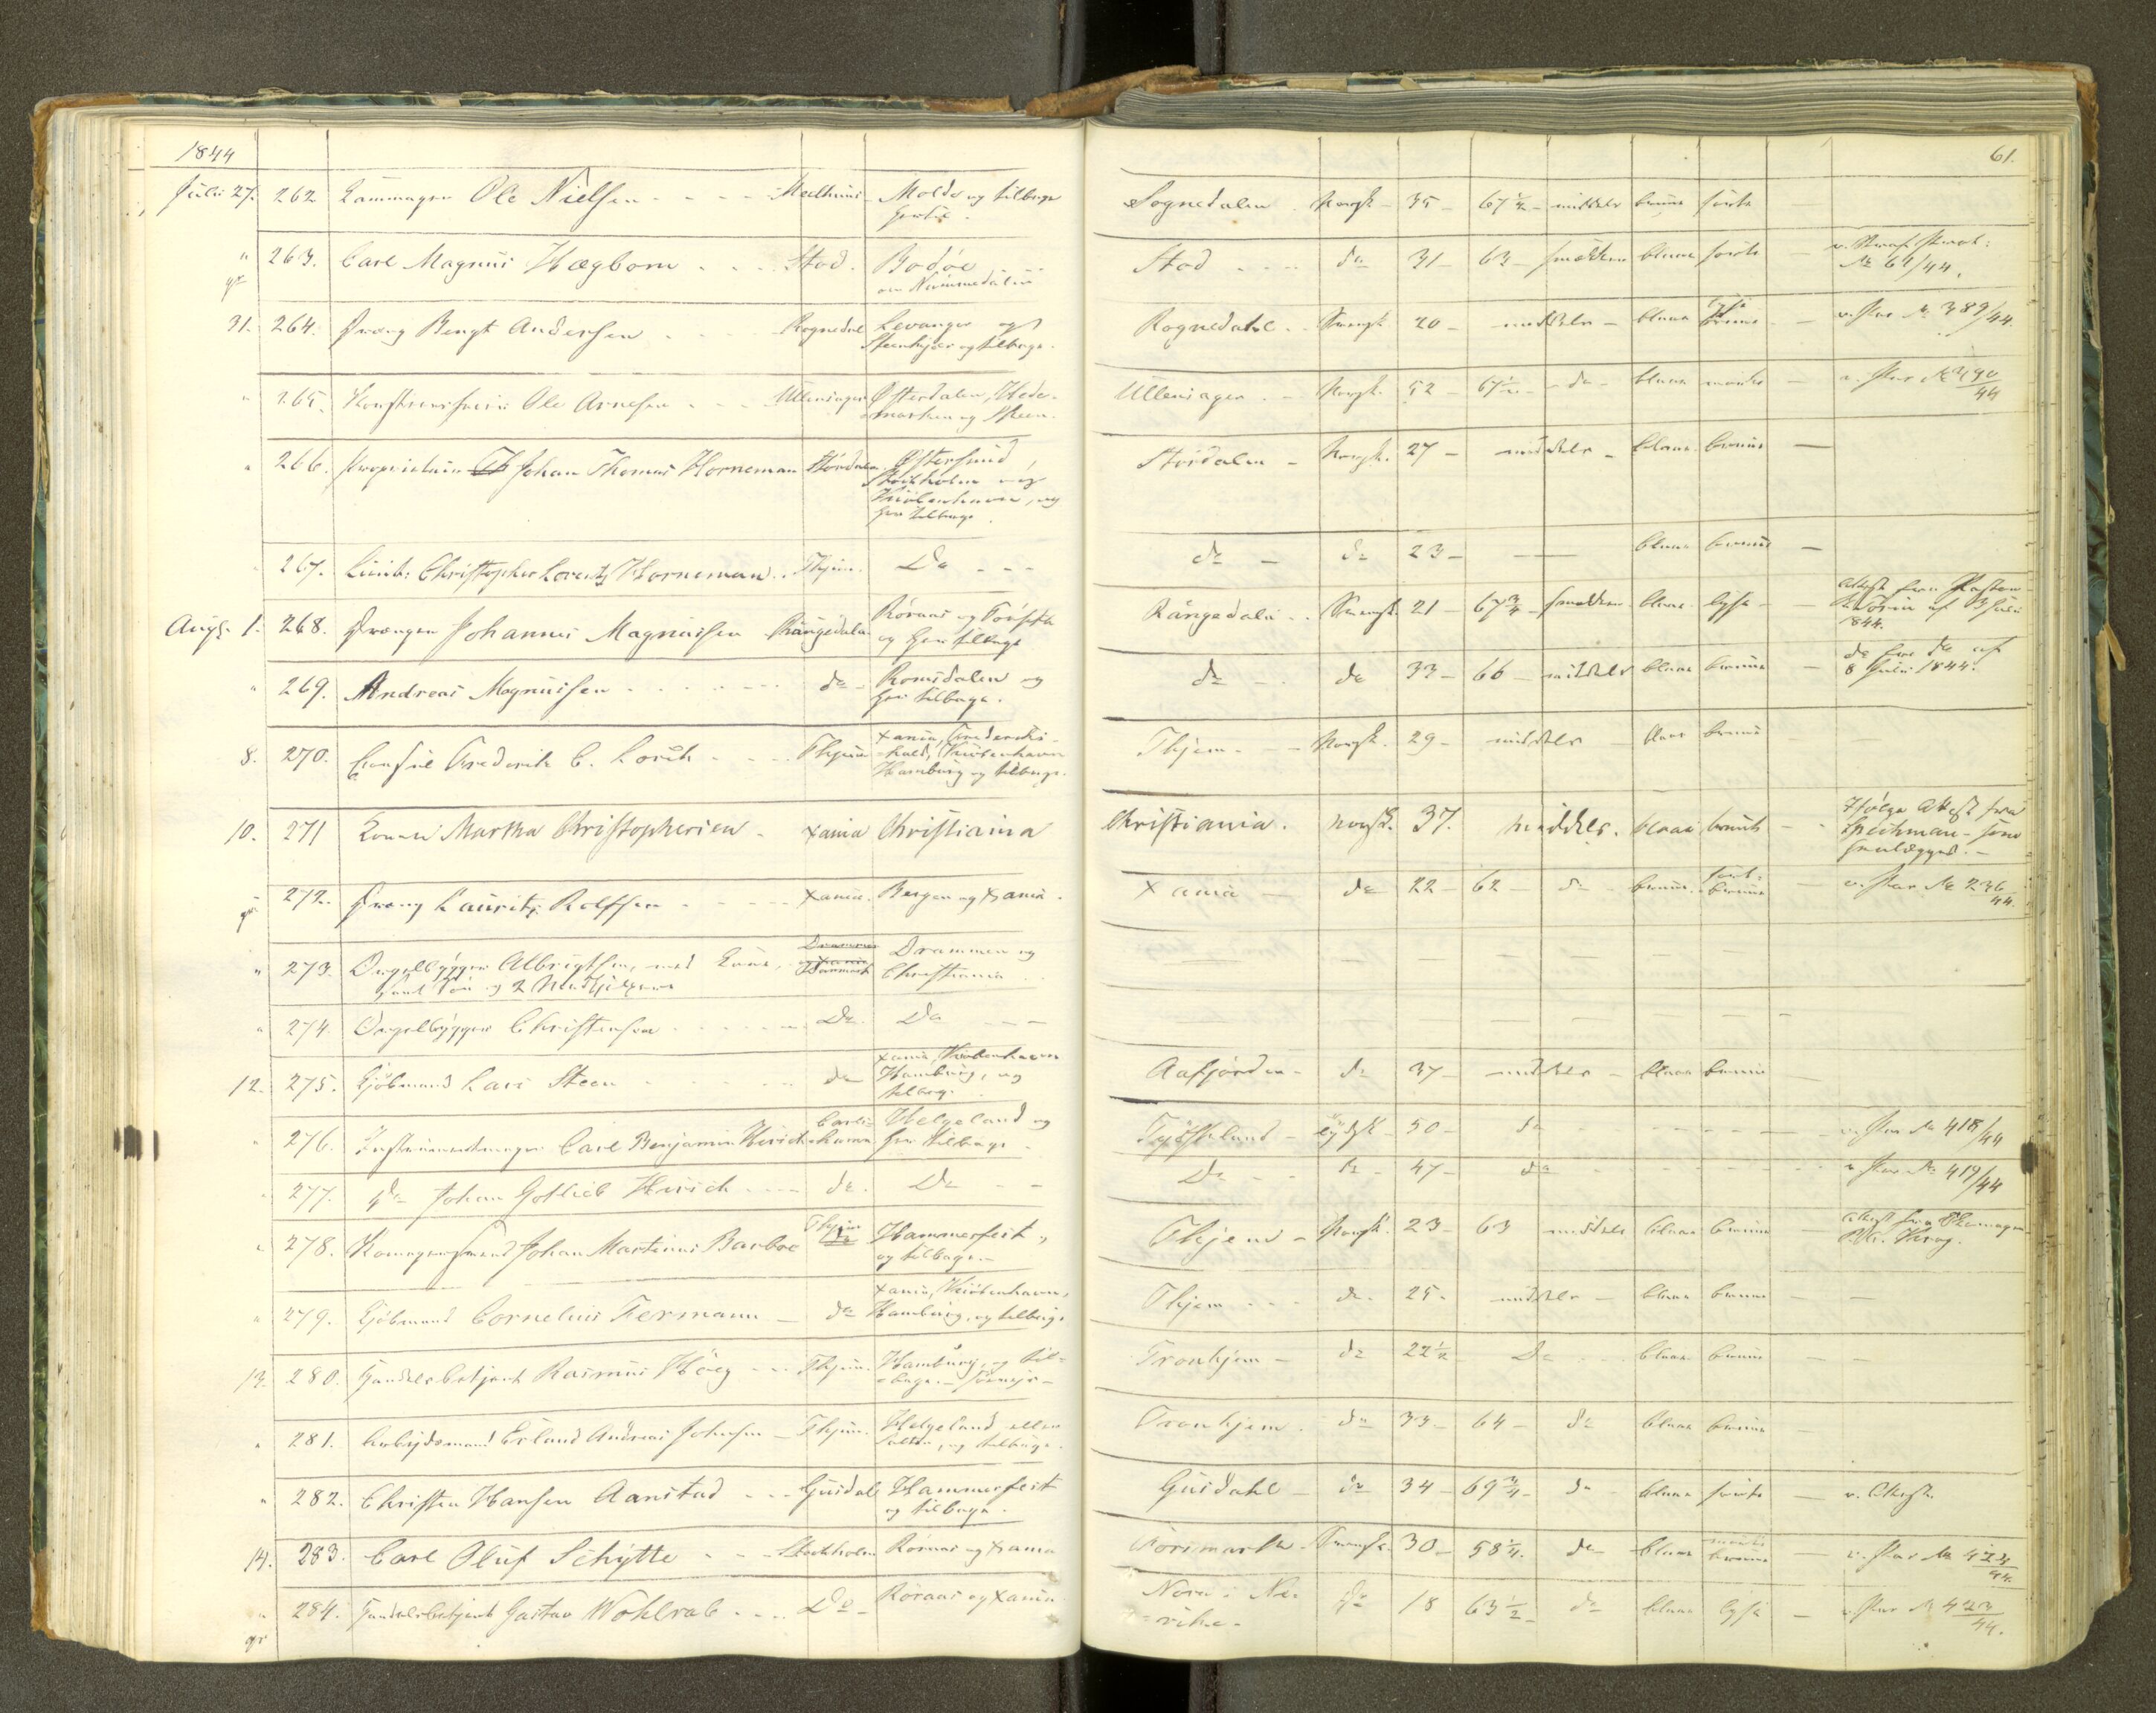 1844
61.
Juli 27. 262 Ole Nielsen - - - Meelhuus Molde og tilbage
Sognedalen Norsk 35 - 67 1/2 - middels bruune sorte
" 263. Carl Magnus Hægbom - - - Stod. Bodøe
om Nummedalen
Stod - - - do 31 - 63 - smekker blaae sorte
No 61/44.
31. 264. Dreng Bengt Andersen - - - Rognedal Levanger og
Steenkjær og tilbage.
Rognedahl - - Svensk 20 - middels - blaae lyse
bruune - v. Pas No 389/44.
" 265. Ole Arnesen - - - Ulleninger Østerdalen, Hede-
marken og Skeen.
Ulleninger - Norsk 52 - 67 1/2 - do - blaae mørke - v. Pas No 490/44
" 266. Proprietair Johan Thomas Horneman Størdalen Østersund,
Stockholm og
Kiöbenhavn, og
tilbage
Størdalen - Norsk. 27 - middels - blaae bruune -
267. Lieut: Christopher Lorentz Horneman. Thjem. Do - - -
do - do 23 - - blaae bruune -
Aug. 1. 268. Drengen Johannes Magnussen Rångedala Röraas og
og tilbage
Rångedala - - Svensk. 21 - 67 3/4 - smekker blaae lyse - Attest fra Pastor
af 3 Juli
1844.
" 269. Andreas Magnussen - - - do - Romsdalen og
tilbage.
do - - do 33 - 66 - middels blaae bruune - do fra do af
8 Juli 1844.
8. 270. Consul Frederik C. Lorck - - - Thjem Xania, Frederiks-
hald, Kiöbenhavn
Hamburg og tilbage.
Thjem - - Norsk. 29 - middels - blaae bruune -
10. 271 Konen Martha Christophersen - Xania Christiania
Christiania. norsk. 37. middels. blaae bruune - Attest fra
272. Dreng Lauritz Rolfsen - - - Xania. Bergen og Xania.
Xania - do 22 - 62 - do - bruune sort-
bruune - v. Pas No 236/44.
" 273. Orgelbygger Albrigtsen, med Kone, Danmark Drammen og
Christiania
og 2
" 274. Orgelbygger Christensen - - - Do. Do - - -
12. 275. Kjöbmand Lars Steen - - - do Xania, Kiöbenhavn
Hamburg, og
tilbage
Aafjorden - do 37 - middels - blaae bruune
" 276. Instrumentmager Carl Benjamin Hirsch Carls-
hamn Helgeland og
tilbage
Tydskland - tydsk 50 - do - v. Pas No 418/44
" 277. do Johan Gotlieb Hirsch - - - do. Do - -
Do - - do - 47 - do - v. Pas No 419/44
" 278. Johan Martinus Barboe Thjem Hammerfest,
og tilbage.
Thjem - Norsk. 23 - 63 middels blaae bruune Attest fra
" 279. Kjöbmand Cornelius Fermann - do Xania, Kiöbenhavn,
Hamburg, og tilbage
Thjem - - - do. 25. middels - blaae bruune -
13. 280. Handelsbetjent Rasmus Höeg - - - Thjem. Hamburg, og til-
bage.
Tronhjem - do 22 1/2 Do - - blaae bruune - -
" 281. Arbeidsmand Erland Andreas Johnsen - Thjem. Helgeland eller
Salten, og tilbage.
Tronhjem. do 33 - 64 - do blaae bruune
" 282. Christen Hansen Aanstad - - - Guidal Hammerfest
og tilbage.
Guidahl - do 34 - 69 3/4 - do - blaae sorte - v. Attest.
14. 283. Carl Oluf Schytte - - - Stockholm Röraas og Xania
Svensk. 30 - 58 1/4. do - blaae mörke
bruune - v. Pas No 424/44.
" 284. Handelsbetjent Gustav Wohlrab - - - Do - Röraas og Xania.
Nora i Ne-
rike - do 18 63 1/2 - do - blaae lyse - v. Pas No 423/44.